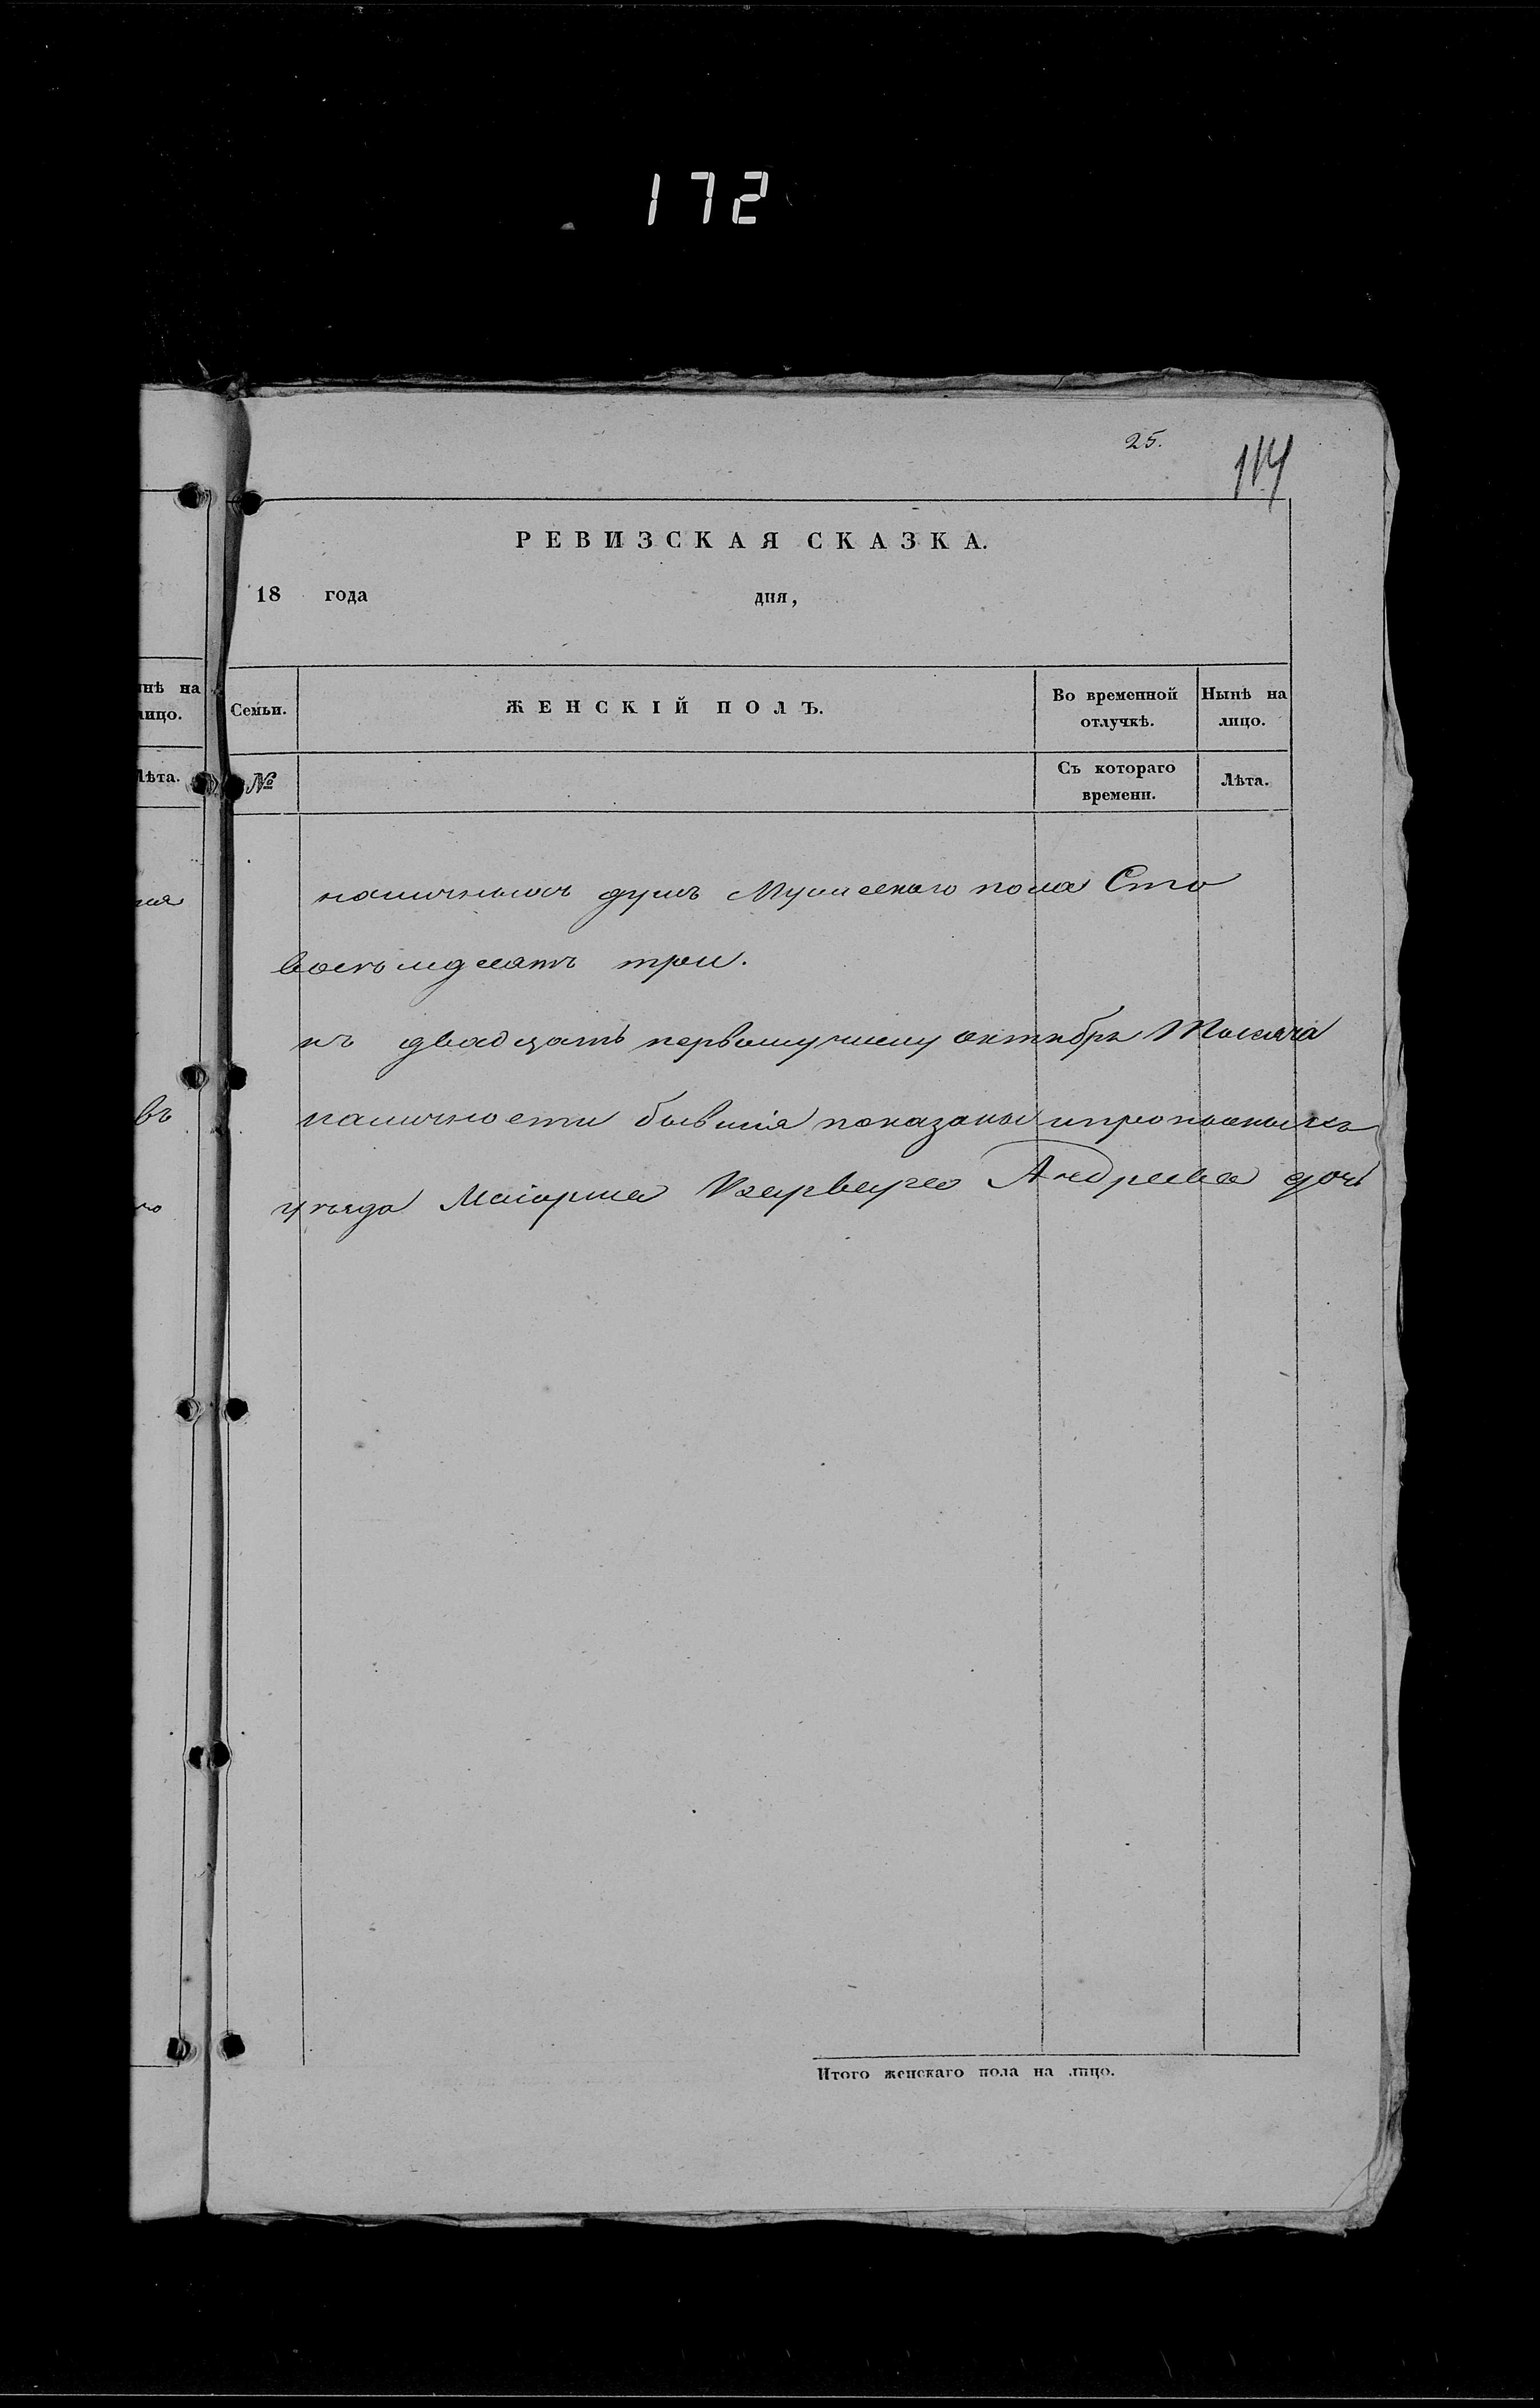 172
25.
114
РЕВИЗСКАЯ СКАЗКА.
18 года дня,
нѣ на
лицо.
Лѣта.
Семьи.
ЖЕНСКІЙ ПОЛЪ.
Во временной
отлучкѣ.
Нынѣ на
лицо.
№
Съ котораго
времени.
Лѣта.
наличныхъ душъ Мужескаго пола Сто
восемьдесятъ три.
къ двадцать первому числу октября Тысяча
въ наличности бывшія показаны
уѣзда Маіорша Андреева дочь
Итого женскаго пола на лицо.